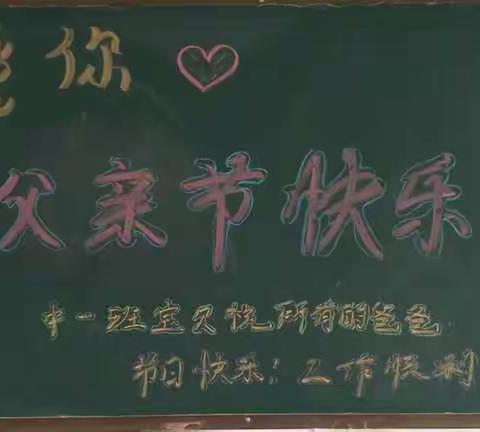 你
父亲节快乐
中一班宝贝祝所有的爸爸
节日快乐：工作顺利